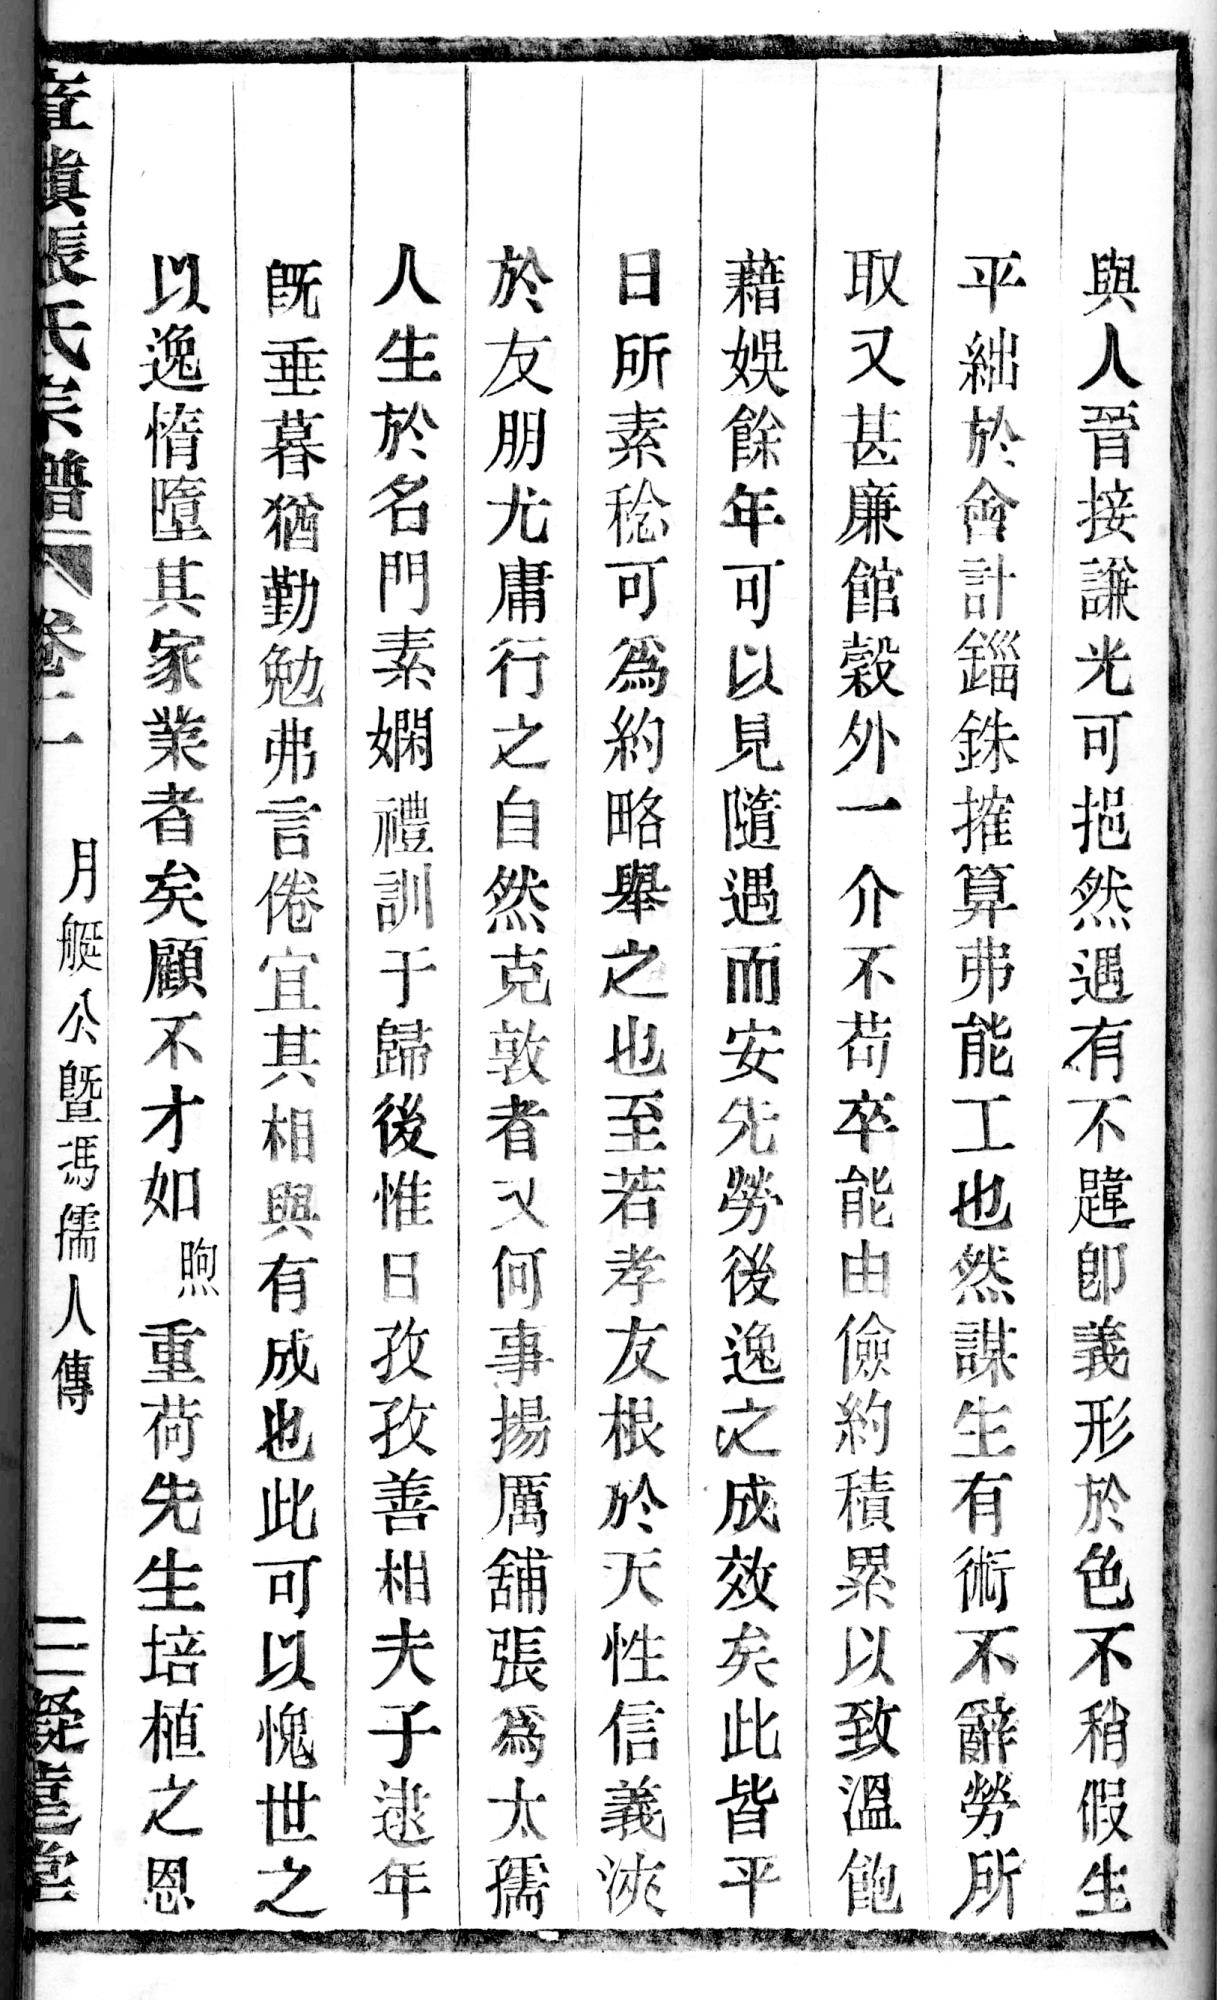 與人晉接謙光可挹然遇有不韙卽義形於色不稍假生
平絀於會計錙銖搉算弗能工也然謀生有術不辭勞所
取又甚廉館穀外一介不苟卒能由儉約積累以致溫飽
藉娛餘年可以見隨遇而安先勞後逸之成效矣此皆平
日所素稔可爲約略舉之也至若孝友根於天性信義浹
於友朋尤庸行之自然克敦者又何事揚厲舖張爲太孺
人生於名門素嫻禮訓于歸後惟日孜孜善相夫子逮年
旣垂暮猶勤勉弗言倦宜其相與有成也此可以愧世之
以逸惰墮其家業者矣顧不才如煦重荷先生培植之恩
章鎮張氏宗譜 卷十一 月艇公曁馮孺人傳 三 凝薳堂